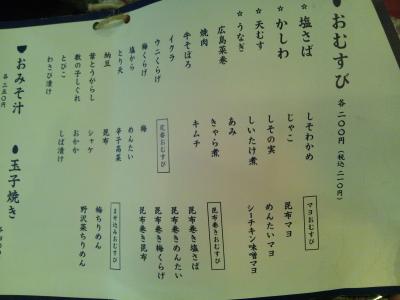 おむすび 各 二〇〇円 (税込 二一〇円)
☆ 塩さば
☆ かしわ
☆ 天むす
☆ うなぎ
広島菜巻
焼肉
牛そぼろ
イクラ
ウニくらげ
梅くらげ
塩から
とり天
納豆
葉とうがらし
数の子しぐれ
とびこ
わさび漬け
しそわかめ
じゃこ
しその実
しいたけ煮
あみ
きゃら煮
キムチ
定番おむすび
梅
めんたい
辛子高菜
昆布
シャケ
おかか
しば漬け
マヨおむすび
昆布マヨ
めんたいマヨ
シーチキン味噌マヨ
昆布巻きおむすび
昆布巻き塩さば
昆布巻きめんたい
昆布巻き梅くらげ
昆布巻き昆布
まぜ込みおむすび
梅ちりめん
野沢菜ちりめん
おみそ汁
各 二五〇円
玉子焼き